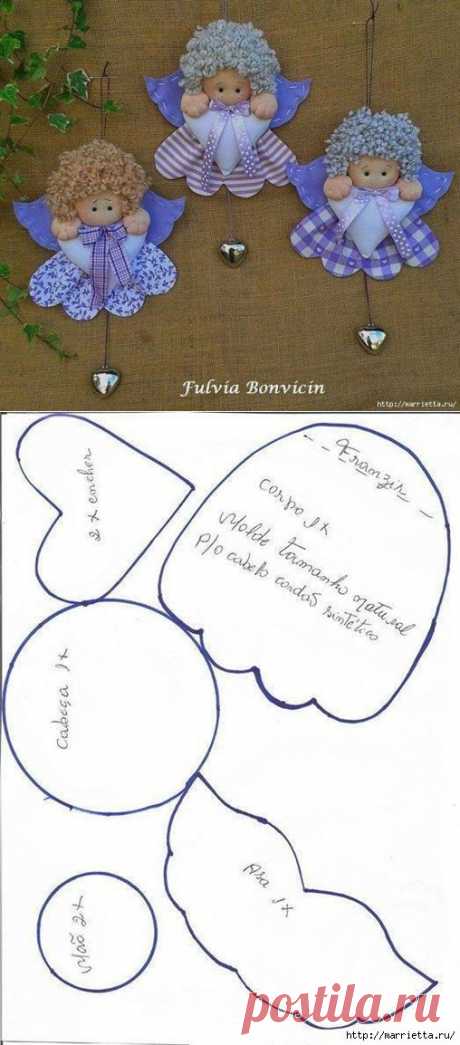 Fulvia Bonvicin
http://marrietta.ru/
Franzir
2 x encher
corpo 1x
Molde tamanho natural
p/o cabelo cordas sintético
Cabeça 1x
Asa 1x
Mão 2x
postila.ru
http://marrietta.ru/